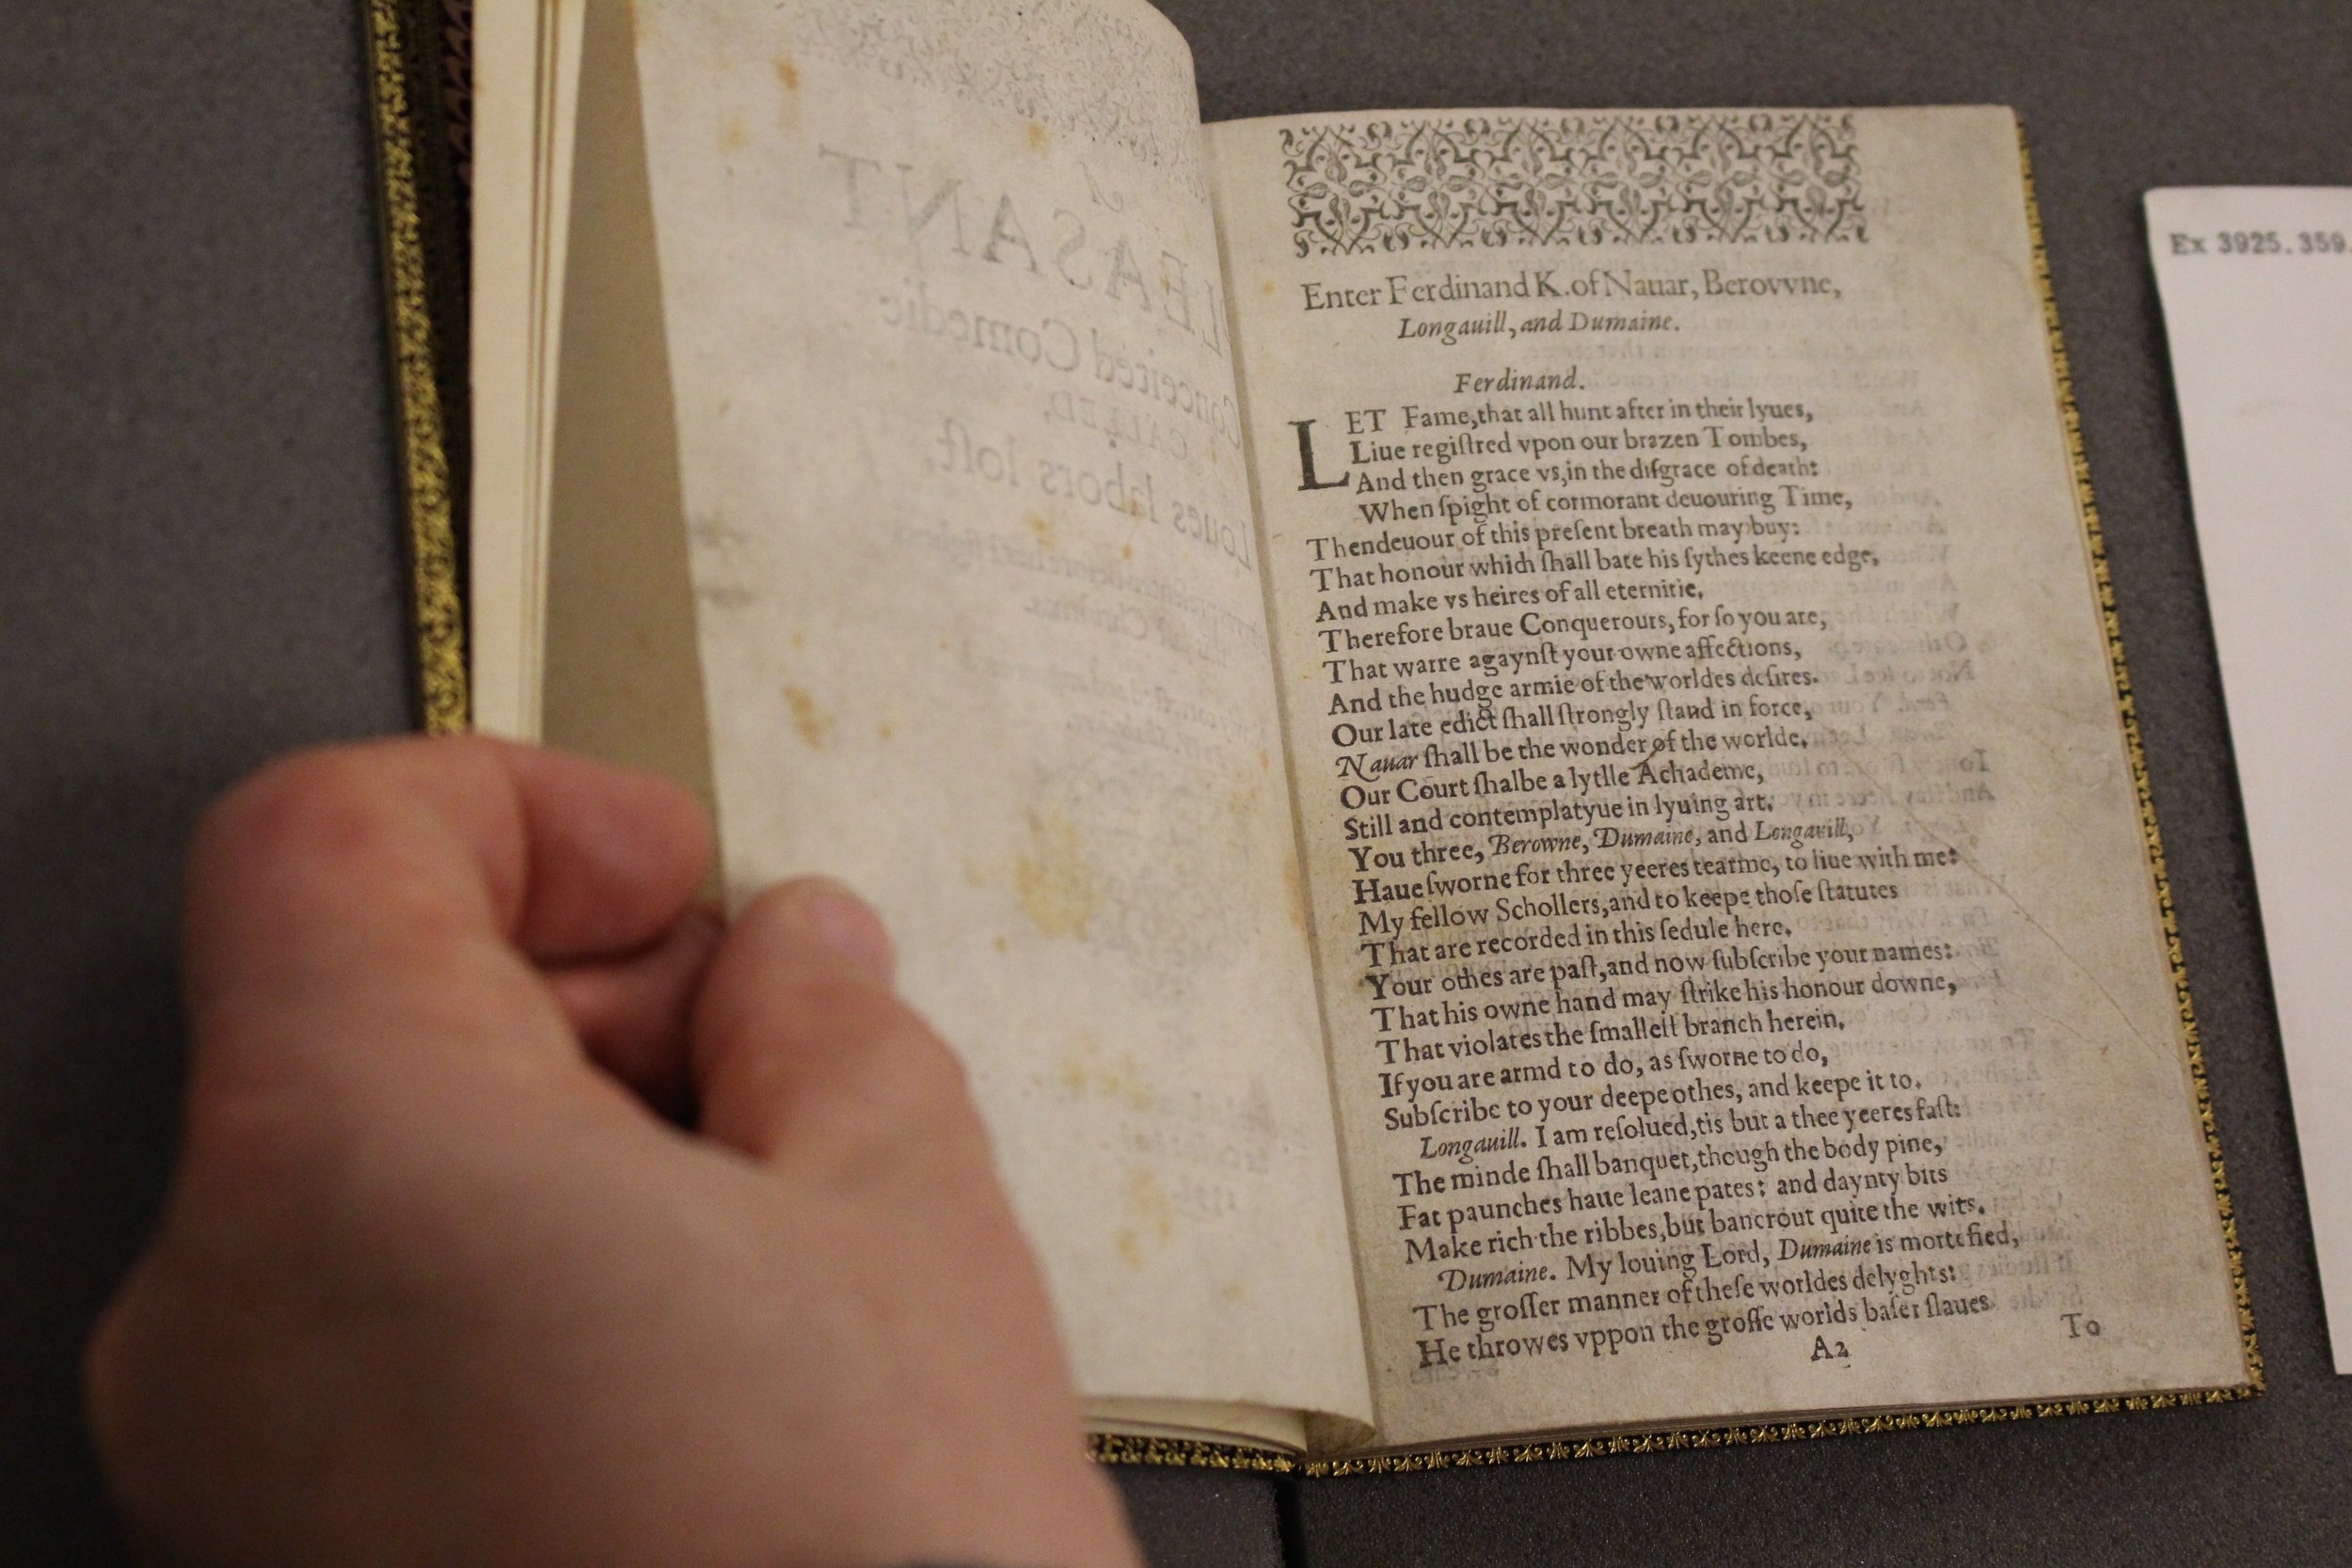 A
LEASANT
Conceited Comedie
CALLED,
Loues labors lost.
Enter Ferdinand K. of Nauar, Berovvne,
Longauill, and Dumaine.
Ferdinand.
LET Fame, that all hunt after in their lyues,
Liue registred vpon our brazen Tombes,
And then grace vs, in the disgrace of death:
When spight of cormorant deuouring Time,
Thendeuour of this present breath may buy:
That honour which shall bate his sythes keene edge,
And make vs heires of all eternitie.
Therefore braue Conquerours, for so you are,
That warre agaynst your owne affections,
And the hudge armie of the worldes desires.
Our late edict shall strongly stand in force,
Nauar shall be the wonder of the worlde.
Our Court shalbe a lytlle Achademe,
Still and contemplatyue in lyuing art.
You three, Berowne, Dumaine, and Longauill,
Haue sworne for three yeeres tearme, to liue with me:
My fellow Schollers, and to keepe those statutes
That are recorded in this sedule here.
Your othes are past, and now subscribe your names:
That his owne hand may strike his honour downe,
That violates the smallest branch herein,
If you are armd to do, as sworne to do,
Subscribe to your deepe othes, and keepe it to.
Longauill. I am resolued, tis but a thee yeeres fast:
The minde shall banquet, though the body pine,
Fat paunches haue leane pates: and daynty bits
Make rich the ribbes, but bancrout quite the wits.
Dumaine. My louing Lord, Dumaine is mortefied,
The grosser manner of these worldes delyghts:
He throwes vppon the grosse worlds baser slaues
A2 To
Ex 3925.359